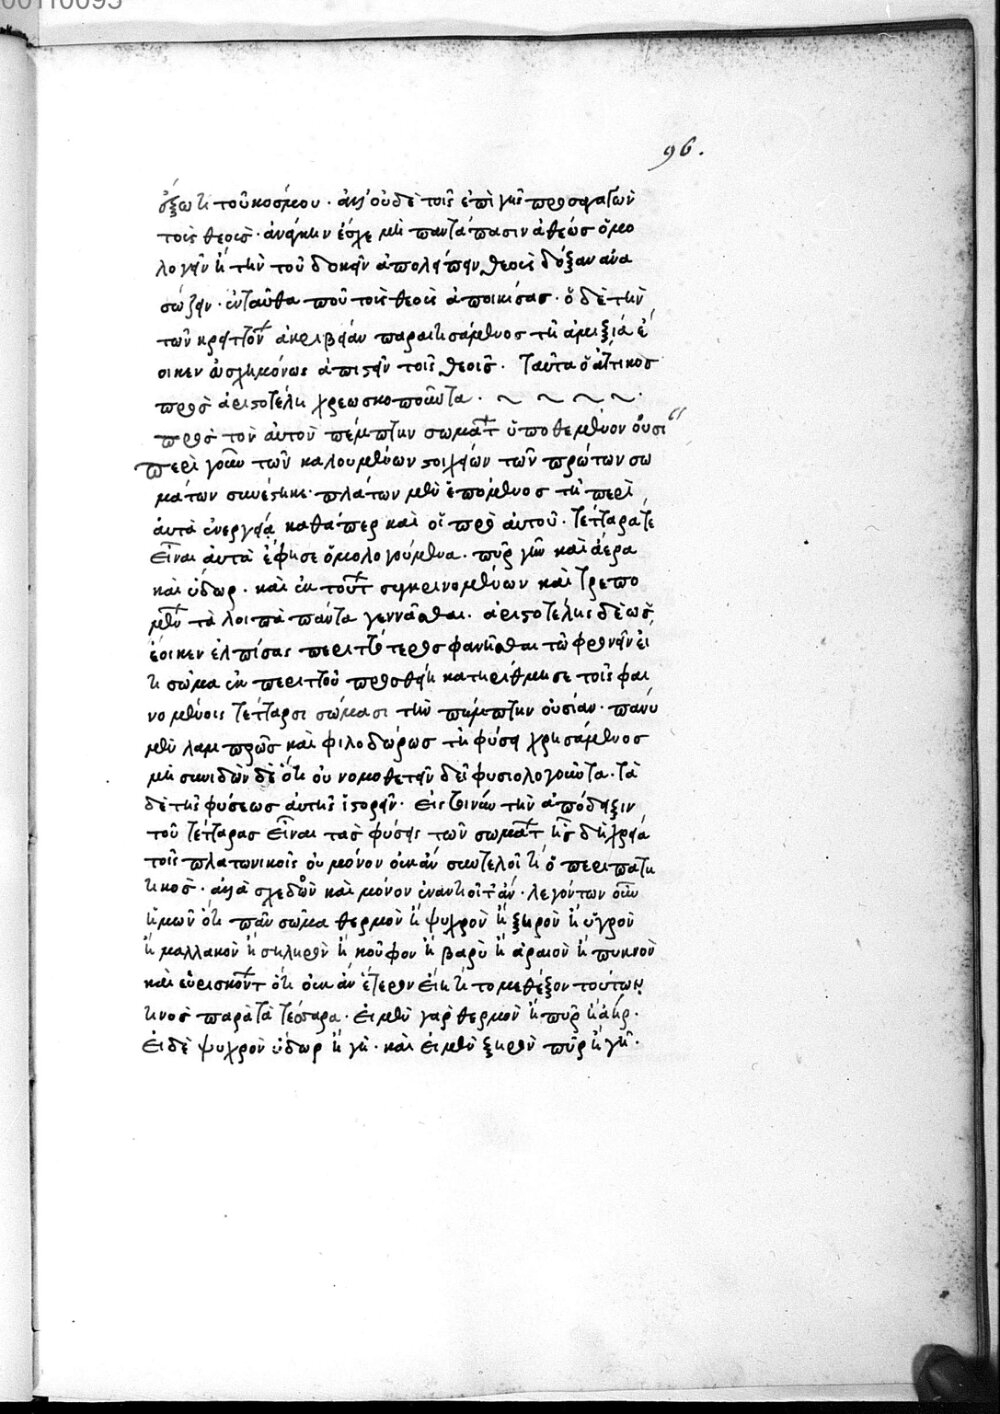 00110095
96.
ἔξω τι τοῦ κόσμου · ἀλλ' οὐδὲ τοῖς ἐπὶ γῆς προσφατῶν
τοῖς θεοῖς · ἀνάγκην ἔσχε μὴ παντάπασιν ἀθέως ὁμο
λογεῖν ἢ τὴν τοῦ δοκεῖν ἀπολείπειν θεοῖς δόξαν ἀνα
σώζειν · ἐνταῦθα που τοῖς θεοῖς ἀποικίσας · ὁ δὲ τὴν
τῶν κρειττόνων ἀκρίβειαν παραιτησάμενος τῇ ἀμιξίᾳ ἔ
οικεν εὐσχημόνως ἀπιστεῖν τοῖς θεοῖς · ταῦτα ὁ ἀττικὸς
πρὸς ἀριστοτέλη χρεωσκοποῦντα · ~ ~ ~ ~ ·
πρὸς τὸν αὐτὸν πέμπτην σωμάτων ὑποθεμένον οὐσί
περὶ γοῦν τῶν καλουμένων στοιχείων τῶν πρώτων σω
μάτων συνέστηκε · πλάτων μὲν ἑπόμενος τῇ περὶ
αὐτὰ ἐνεργείᾳ καθάπερ καὶ οἱ πρὸ αὐτοῦ · τέτταρά τε
εἶναι αὐτὰ ἔφησε ὁμολογούμενα · πῦρ γῆν καὶ ἀέρα
καὶ ὕδωρ · καὶ ἐκ τούτων συγκρινομένων καὶ τρεπο
μένων τὰ λοιπὰ πάντα γεννᾶσθαι · ἀριστοτέλης δὲ ὡς
ἔοικεν ἐλπίσας περιττότερος φανεῖσθαι τῷ φρονεῖν εἴ
τι σῶμα ἐκ περιττοῦ προσθείη κατηρίθμησε τοῖς φαι
νομένοις τέτταρσι σώμασι τὴν πέμπτην οὐσίαν · πάνυ
μὲν λαμπρῶς καὶ φιλοδώρως τῇ φύσει χρησάμενος
μὴ συνιδὼν δὲ ὅτι οὐ νομοθετεῖν δεῖ φυσιολογοῦντα · τὰ
δὲ τῆς φύσεως αὐτῆς ἱστορεῖν · εἰς τοίνυν τὴν ἀπόδειξιν
τοῦ τέτταρας εἶναι τὰς φύσεις τῶν σωμάτων ἧς δὴ χρεία
τοῖς πλατωνικοῖς οὐ μόνον οὐκ ἂν συντελοῖ τι ὁ περιπατη
τικός · ἀλλὰ σχεδὸν καὶ μόνον ἐναντιοῖτ' ἄν · λεγόντων οὖν
ἡμῶν ὅτι πᾶν σῶμα θερμὸν ἢ ψυχρὸν ἢ ξηρὸν ἢ ὑγρὸν
ἢ μαλλακὸν ἢ σκληρὸν ἢ κοῦφον ἢ βαρὺ ἢ ἀραιὸν ἢ πυκνὸν
καὶ εὑρίσκοντος ὅτι οὐκ ἂν ἕτερον εἴη τι τὸ μεθέξον τούτων
τινὸς παρὰ τὰ τέσσαρα · εἰ μὲν γὰρ θερμὸν ἢ πῦρ ἢ ἀήρ ·
εἰ δὲ ψυχρὸν ὕδωρ ἢ γῆ · καὶ εἰ μὲν ξηρὸν πῦρ ἢ γῆ ·